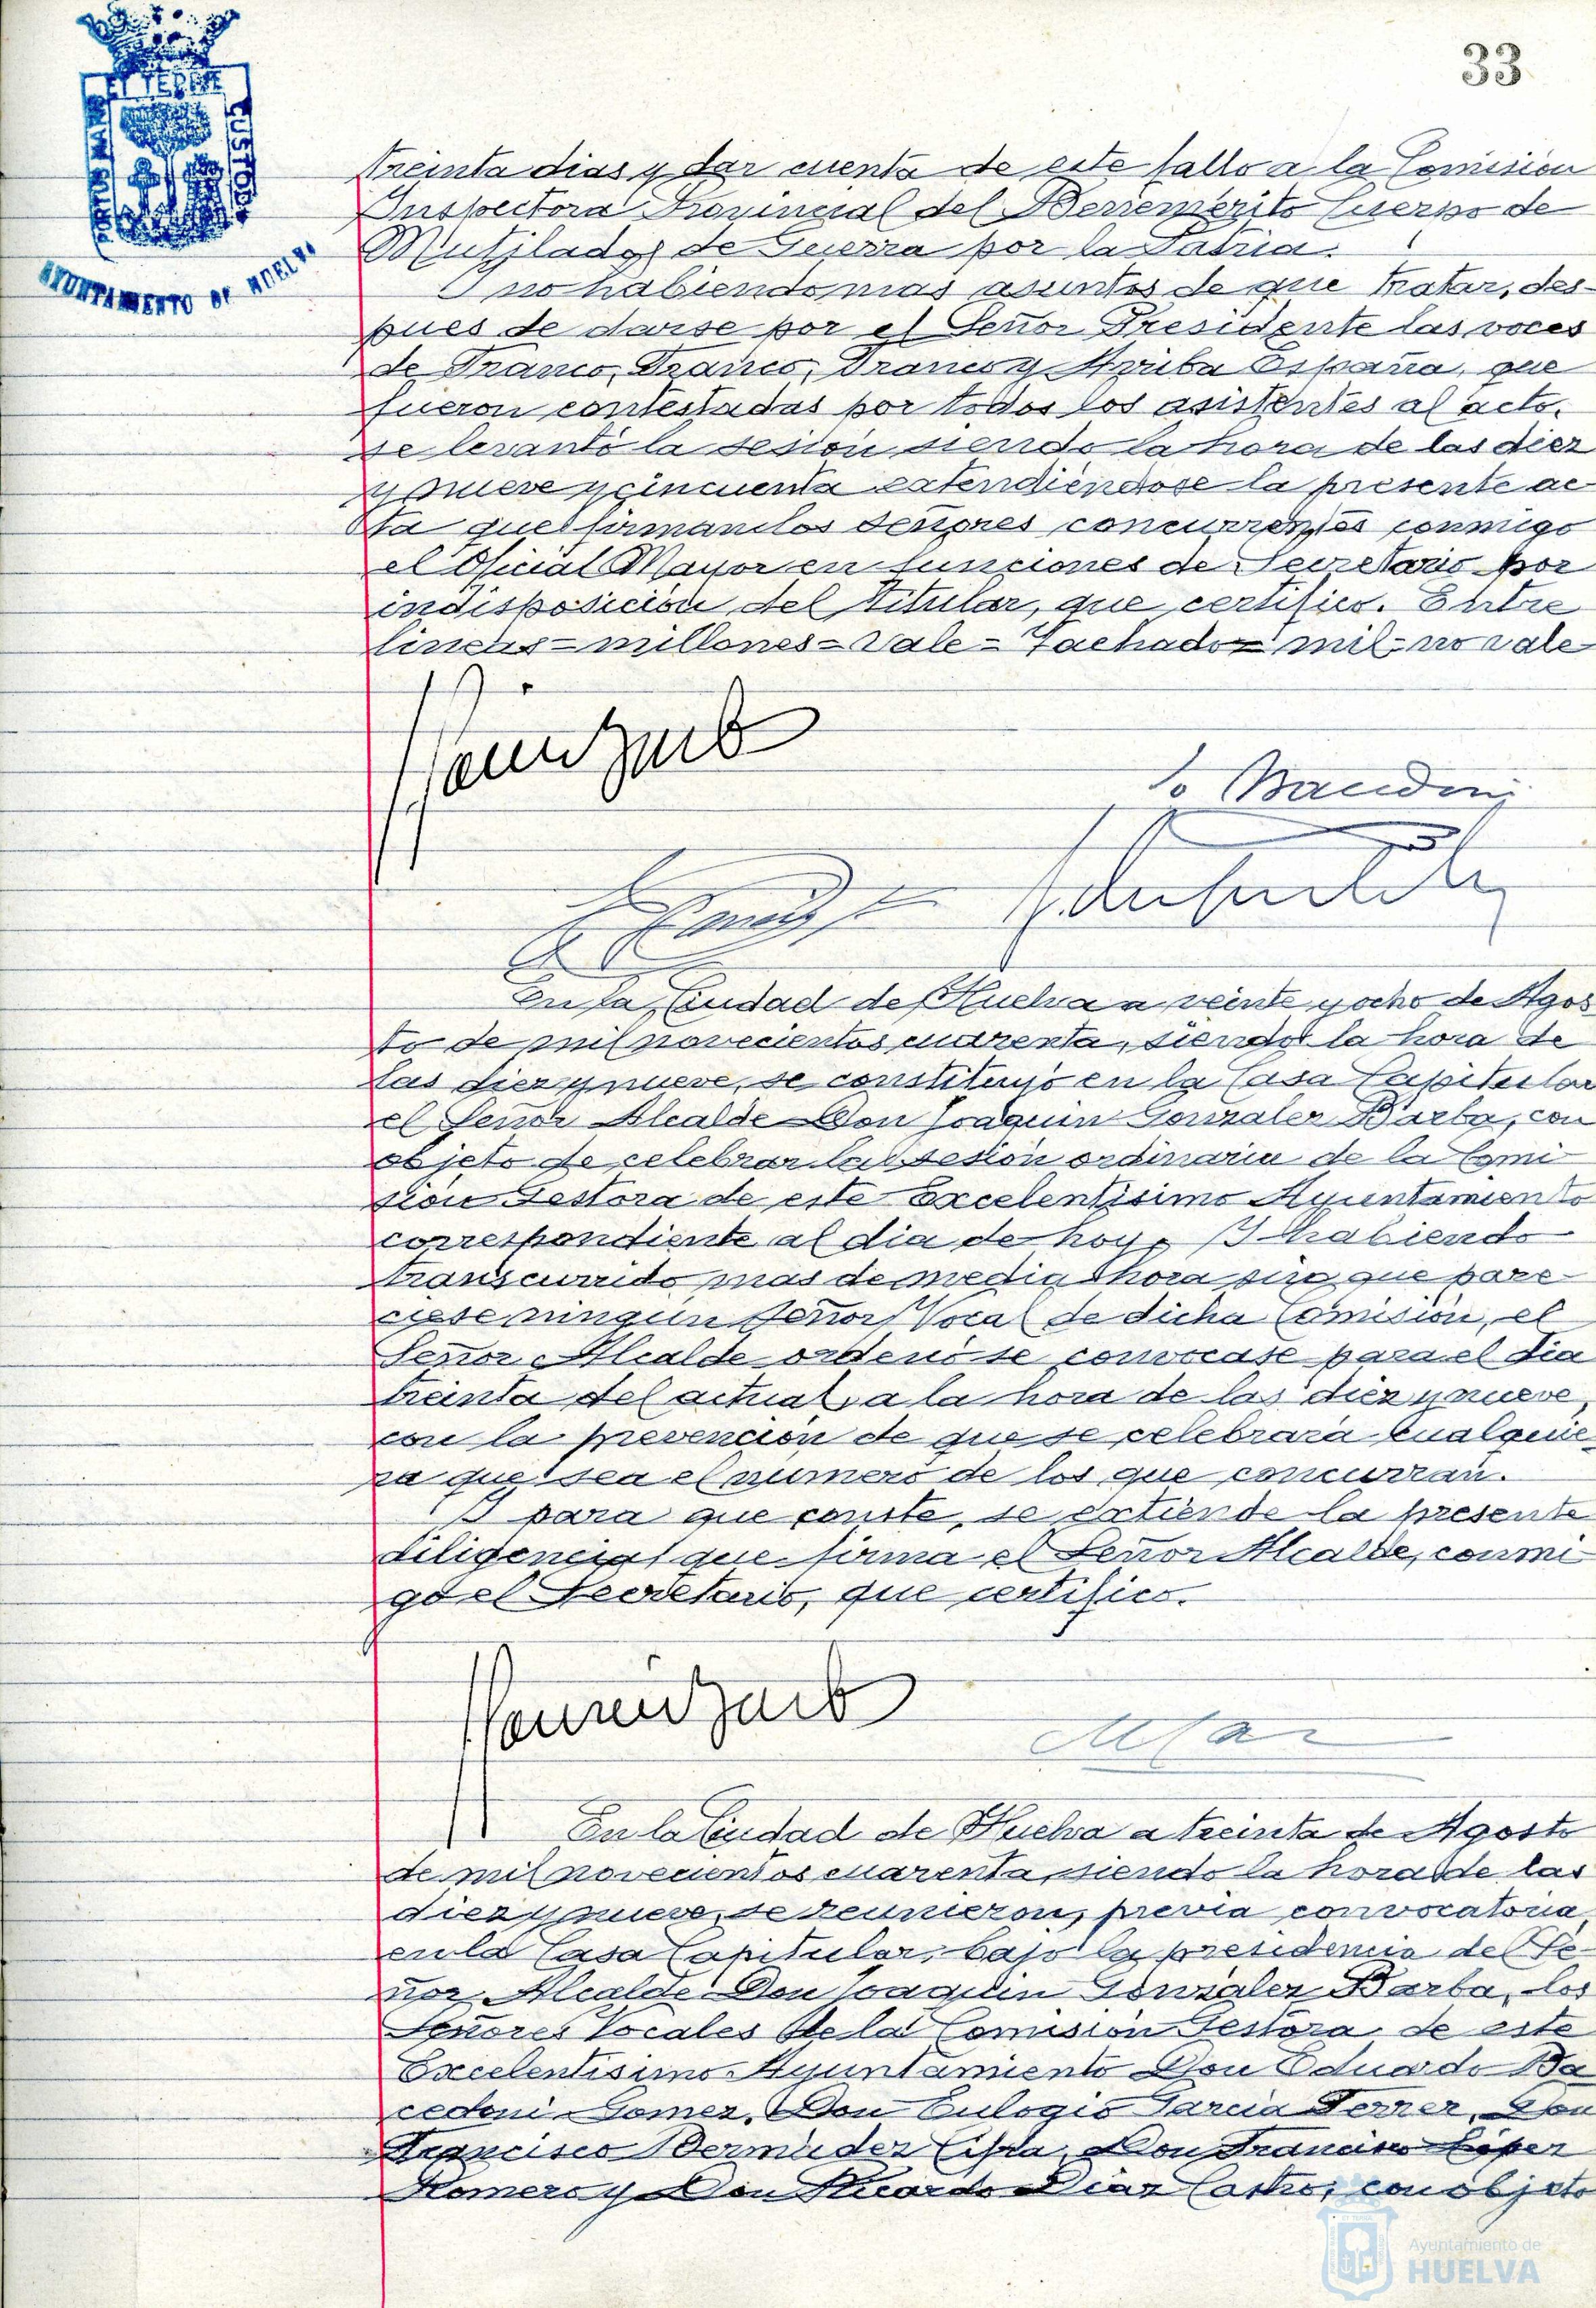 33
PORTUS MARIS
ET TERRE
CUSTODIA
AYUNTAMIENTO DE HUELVA
treinta dias y dar cuenta de este fallo a la Comision
Inspectora Provincial del Benemérito Cuerpo de
Mutilados de Guerra por la Patria.
Y no habiendo mas asuntos de que tratar, des-
pues de darse por el Señor Presidente las voces
de Franco, Franco, Franco y Arriba España, que
fueron contestadas por todos los asistentes al acto,
se levantó la sesión siendo la hora de las diez
y nueve y cincuenta extendiéndose la presente ac-
ta que firman los señores concurrentes conmigo
el Oficial Mayor en funciones de Secretario por
indisposición del titular, que certifico. Entre
lineas = millones = Vale = Tachado = mil = no vale
En la Ciudad de Huelva a veinte y ocho de Agos-
to de mil novecientos cuarenta, siendo la hora de
las diez y nueve, se constituyó en la Casa Capitular
el Señor Alcalde Don Joaquin Gonzalez Barba, con
objeto de celebrar la sesión ordinaria de la Comi-
sión Gestora de este Excelentísimo Ayuntamiento
correspondiente al dia de hoy. Y habiendo
transcurrido mas de media hora sin que pare-
ciese ningun Señor Vocal de dicha Comisión, el
Señor Alcalde ordenó se convocase para el dia
treinta del actual, a la hora de las diez y nueve,
con la prevención de que se celebrará cualquie-
ra que sea el número de los que concurran.
Y para que conste, se extiende la presente
diligencia que firma el Señor Alcalde, conmi-
go el Secretario, que certifico.
En la Ciudad de Huelva a treinta de Agosto
de mil novecientos cuarenta, siendo la hora de las
diez y nueve, se reunieron, previa convocatoria,
en la Casa Capitular, bajo la presidencia del Se-
ñor Alcalde Don Joaquin Gonzalez Barba, los
Señores Vocales de la Comisión Gestora de este
Excelentisimo Ayuntamiento Don Eduardo Ba
cedoni Gomez, Don Eulogio Garcia Ferrer, Don
Francisco Bermudez Don Francisco López
Romero y Don Ricardo Diaz Castro, con objeto
Ayuntamiento de
HUELVA